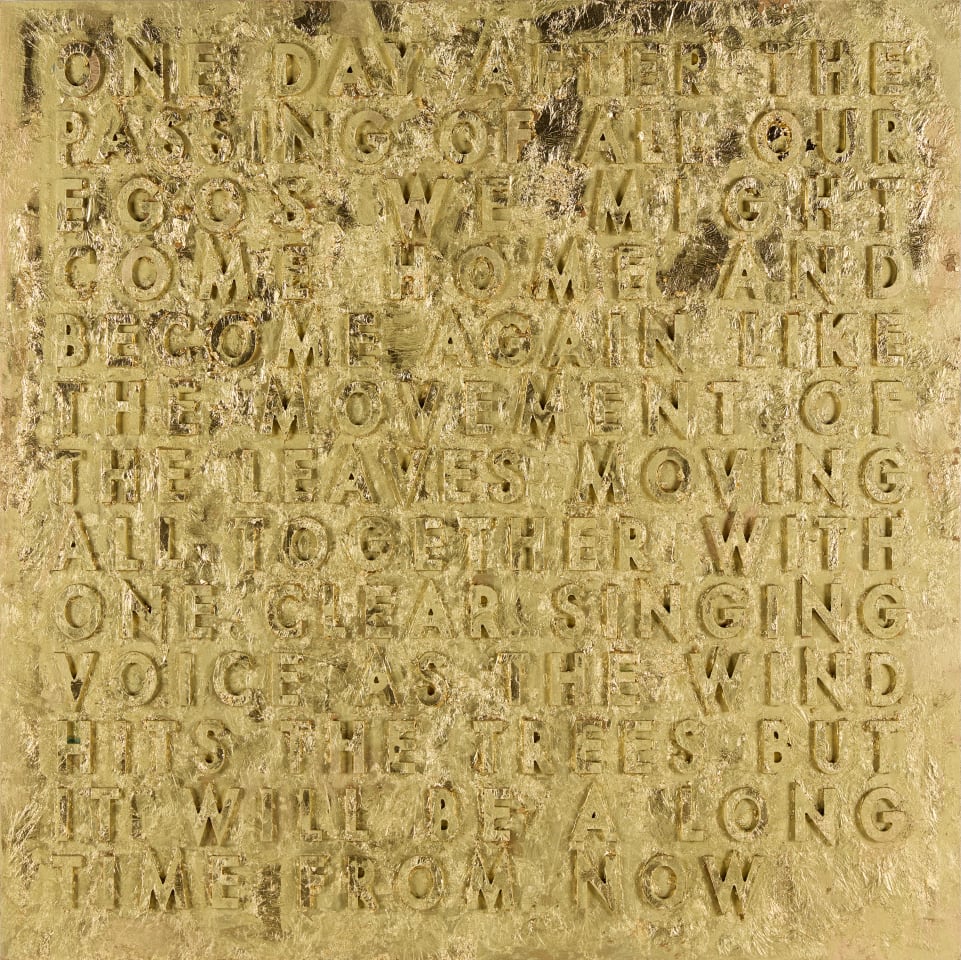 ONE DAY AFTER THE
PASSING OF ALL OUR
EGOS WE MIGHT
COME HOME AND
BECOME AGAIN LIKE
THE MOVEMENT OF
THE LEAVES MOVING
ALL TOGETHER WITH
ONE CLEAR SINGING
VOICE AS THE WIND
HITS THE TREES BUT
IT WILL BE A LONG
TIME FROM NOW